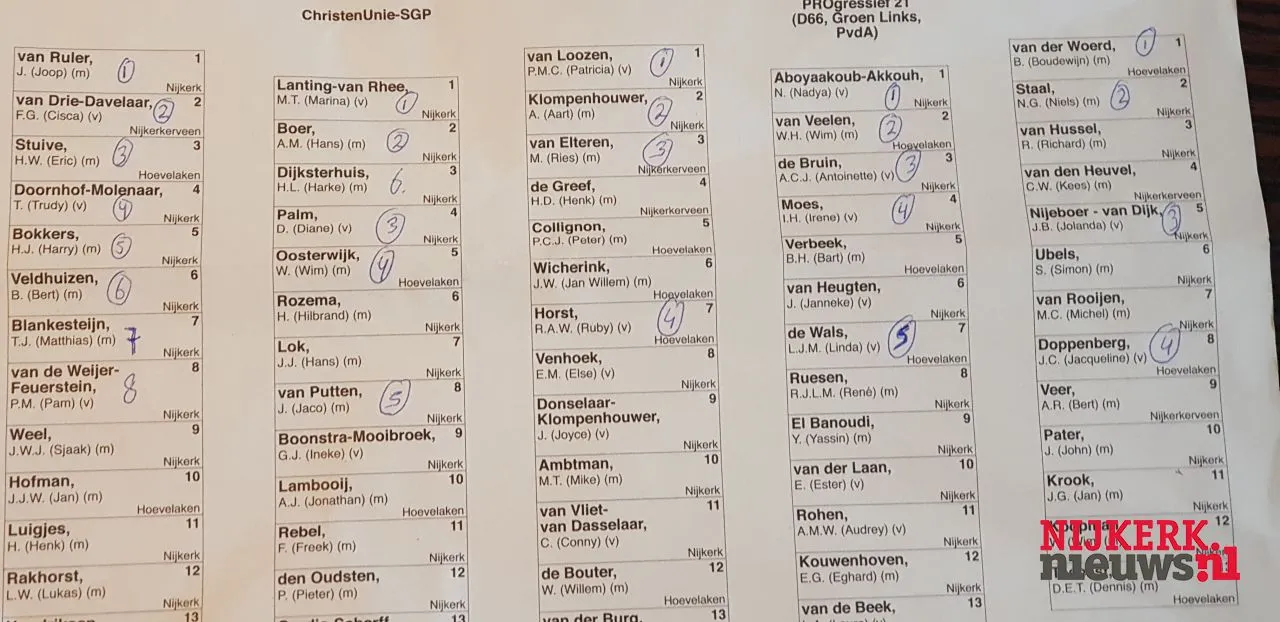 ChristenUnie-SGP
PROgressief 21
(D66, Groen Links,
PvdA)
van Ruler, 1
J. (Joop) (m) 1
Nijkerk
van Drie-Davelaar, 2
F.G. (Cisca) (v) 2
Nijkerkerveen
Stuive, 3
H.W. (Eric) (m) 3
Hoevelaken
Doornhof-Molenaar, 4
T. (Trudy) (v) 4
Nijkerk
Bokkers, 5
H.J. (Harry) (m) 5
Nijkerk
Veldhuizen, 6
B. (Bert) (m) 6
Nijkerk
Blankesteijn, 7
T.J. (Matthias) (m) 7
Nijkerk
van de Weijer- 8
Feuerstein,
P.M. (Pam) (v) 8
Nijkerk
Weel, 9
J.W.J. (Sjaak) (m)
Nijkerk
Hofman, 10
J.J.W. (Jan) (m)
Hoevelaken
Luigjes, 11
H. (Henk) (m)
Nijkerk
Rakhorst, 12
L.W. (Lukas) (m)
Nijkerk
13
Lanting-van Rhee, 1
M.T. (Marina) (v) 1
Nijkerk
Boer, 2
A.M. (Hans) (m) 2
Nijkerk
Dijksterhuis, 3
H.L. (Harke) (m) 6.
Nijkerk
Palm, 4
D. (Diane) (v) 3
Nijkerk
Oosterwijk, 5
W. (Wim) (m) 4
Hoevelaken
Rozema, 6
H. (Hilbrand) (m)
Nijkerk
Lok, 7
J.J. (Hans) (m)
Nijkerk
van Putten, 8
J. (Jaco) (m) 5
Nijkerk
Boonstra-Mooibroek, 9
G.J. (Ineke) (v)
Nijkerk
Lambooij, 10
A.J. (Jonathan) (m)
Nijkerk
Rebel, 11
F. (Freek) (m)
Nijkerk
den Oudsten, 12
P. (Pieter) (m)
Nijkerk
13
van Loozen, 1
P.M.C. (Patricia) (v) 1
Nijkerk
Klompenhouwer, 2
A. (Aart) (m) 2
Nijkerk
van Elteren, 3
M. (Ries) (m) 3
Nijkerkerveen
de Greef, 4
H.D. (Henk) (m)
Nijkerkerveen
Collignon, 5
P.C.J. (Peter) (m)
Hoevelaken
Wicherink, 6
J.W. (Jan Willem) (m)
Hoevelaken
Horst, 7
R.A.W. (Ruby) (v) 4
Hoevelaken
Venhoek, 8
E.M. (Else) (v)
Nijkerk
Donselaar- 9
Klompenhouwer,
J. (Joyce) (v)
Nijkerk
Ambtman, 10
M.T. (Mike) (m)
Nijkerk
van Vliet- 11
van Dasselaar,
C. (Conny) (v)
Nijkerk
de Bouter, 12
W. (Willem) (m)
Hoevelaken
van der Burg, 13
Aboyaakoub-Akkouh, 1
N. (Nadya) (v) 1
Nijkerk
van Veelen, 2
W.H. (Wim) (m) 2
Hoevelaken
de Bruin, 3
A.C.J. (Antoinette) (v) 3
Nijkerk
Moes, 4
I.H. (Irene) (v) 4
Nijkerk
Verbeek, 5
B.H. (Bart) (m)
Hoevelaken
van Heugten, 6
J. (Janneke) (v)
Nijkerk
de Wals, 7
L.J.M. (Linda) (v) 5
Hoevelaken
Ruesen, 8
R.J.L.M. (René) (m)
Nijkerk
El Banoudi, 9
Y. (Yassin) (m)
Nijkerk
van der Laan, 10
E. (Ester) (v)
Nijkerk
Rohen, 11
A.M.W. (Audrey) (v)
Nijkerk
Kouwenhoven, 12
E.G. (Eghard) (m)
Nijkerk
van de Beek, 13
van der Woerd, 1
B. (Boudewijn) (m) 1
Hoevelaken
Staal, 2
N.G. (Niels) (m) 2
Nijkerk
van Hussel, 3
R. (Richard) (m)
Nijkerk
van den Heuvel, 4
C.W. (Kees) (m)
Nijkerkerveen
Nijeboer - van Dijk, 5
J.B. (Jolanda) (v) 3
Nijkerk
Ubels, 6
S. (Simon) (m)
Nijkerk
van Rooijen, 7
M.C. (Michel) (m)
Nijkerk
Doppenberg, 8
J.C. (Jacqueline) (v) 4
Hoevelaken
Veer, 9
A.R. (Bert) (m)
Nijkerkerveen
Pater, 10
J. (John) (m)
Nijkerk
Krook, 11
J.G. (Jan) (m)
Koopman 12
D.E.T. (Dennis) (m)
Hoevelaken
NIJKERK
nieuws.nl